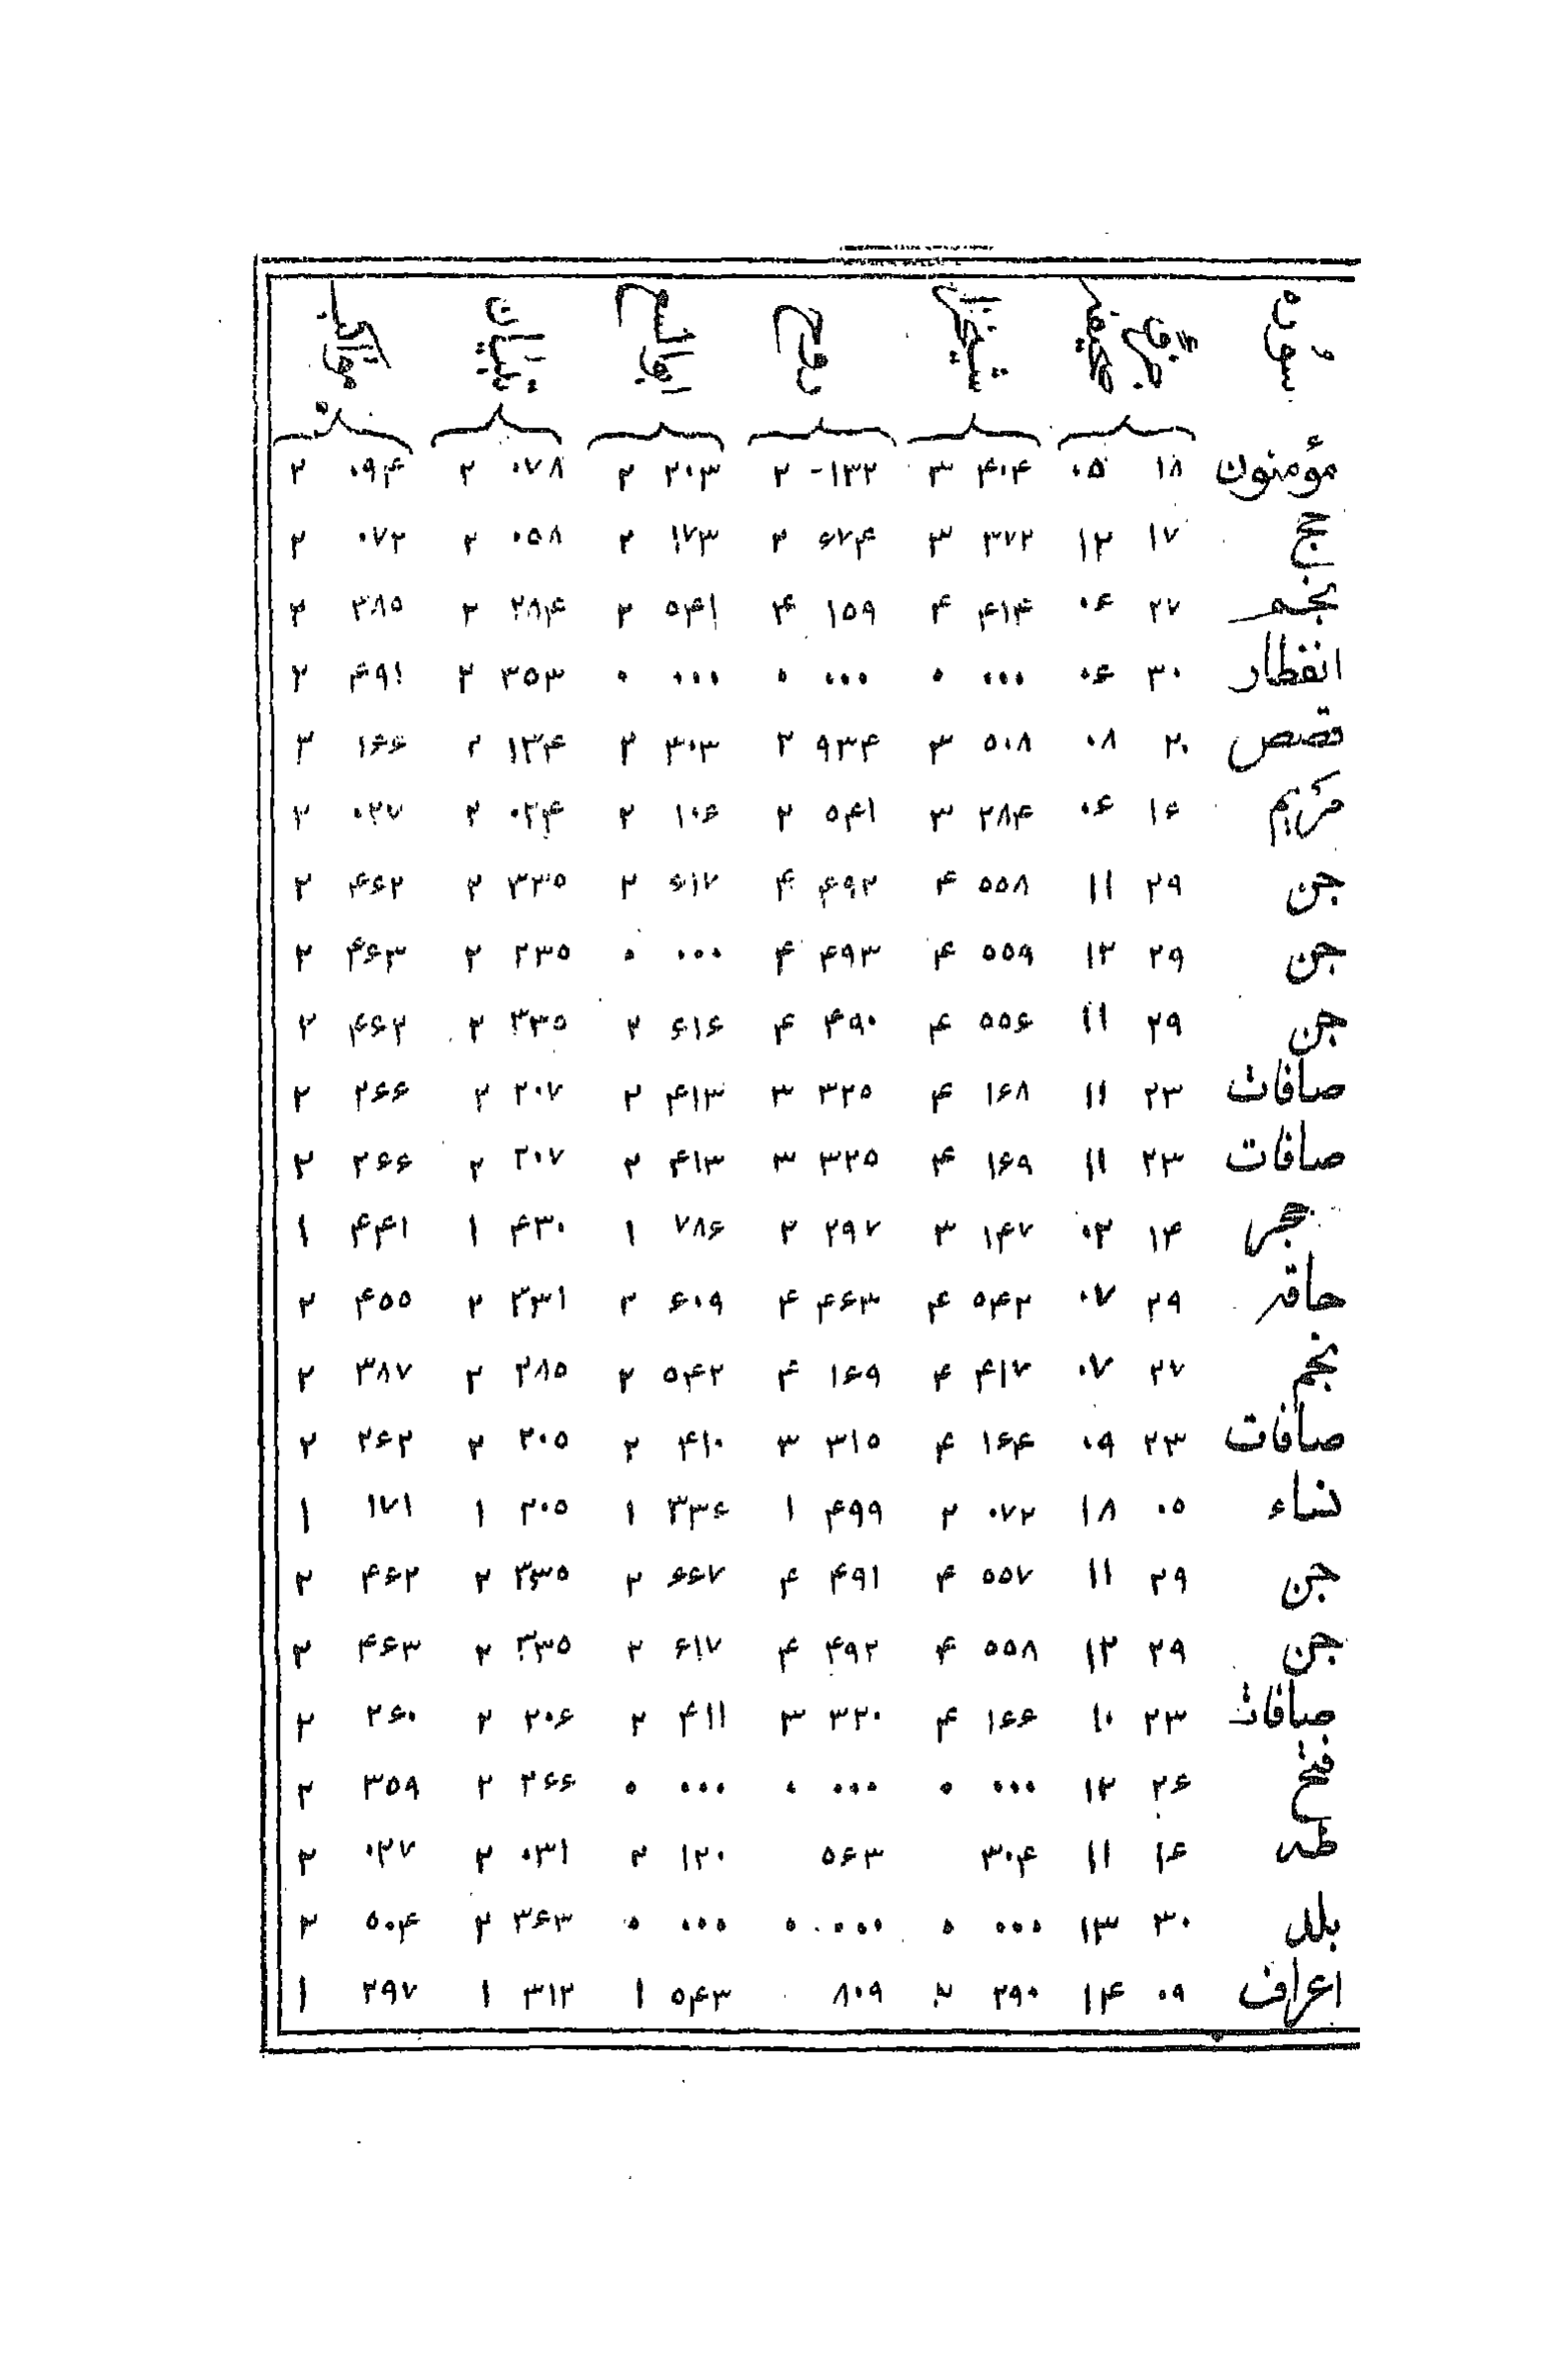 سوره جزء صحیفه شیخ روح ابوالفتح تبیان مواهب
مؤمنون ۱۸ ۰۵ ۴۰۴ ۳ ۱۳۲- ۲ ۲۰۳ ۲ ۰۷۸ ۲ ۰۹۴ ۲
حج ۱۷ ۱۲ ۳۷۲ ۳ ۶۷۴ ۲ ۱۷۳ ۲ ۰۵۸ ۲ ۰۷۲ ۲
نجم ۲۷ ۰۶ ۴۱۴ ۴ ۱۵۹ ۴ ۵۴۱ ۲ ۲۸۴ ۲ ۳۸۵ ۲
انفطار ۳۰ ۰۶ ۰۰۰ ۰ ۰۰۰ ۰ ۰۰۰ ۰ ۳۵۳ ۲ ۴۹۱ ۲
قصص ۲۰ ۰۸ ۵۰۸ ۳ ۹۳۴ ۲ ۳۰۳ ۲ ۱۳۴ ۲ ۱۶۶ ۲
مریم ۱۶ ۰۶ ۲۸۴ ۳ ۵۴۱ ۲ ۱۰۶ ۲ ۰۲۴ ۲ ۰۲۷ ۲
جن ۲۹ ۱۱ ۵۵۸ ۴ ۴۹۲ ۴ ۶۱۷ ۲ ۳۳۵ ۲ ۴۶۲ ۲
جن ۲۹ ۱۲ ۵۵۹ ۴ ۴۹۳ ۴ ۰۰۰ ۰ ۲۳۵ ۲ ۴۶۳ ۲
جن ۲۹ ۱۱ ۵۵۶ ۴ ۴۹۰ ۴ ۶۱۶ ۲ ۳۳۵ ۲ ۴۶۲ ۲
صافات ۲۳ ۱۱ ۱۶۸ ۴ ۳۲۵ ۳ ۴۱۳ ۲ ۲۰۷ ۲ ۲۶۶ ۲
صافات ۲۳ ۱۱ ۱۶۹ ۴ ۳۲۵ ۳ ۴۱۳ ۲ ۲۰۷ ۲ ۲۶۶ ۲
حجر ۱۴ ۰۳ ۱۴۷ ۳ ۲۹۷ ۲ ۷۸۶ ۱ ۴۳۰ ۱ ۴۴۱ ۱
حاقه ۲۹ ۰۷ ۵۴۲ ۴ ۴۶۳ ۴ ۶۰۹ ۲ ۳۳۱ ۲ ۴۵۵ ۲
نجم ۲۷ ۰۷ ۴۱۷ ۴ ۱۶۹ ۴ ۵۴۲ ۲ ۲۸۵ ۲ ۳۸۷ ۲
صافات ۲۳ ۰۹ ۱۶۴ ۴ ۳۱۵ ۳ ۴۱۰ ۲ ۲۰۵ ۲ ۲۶۲ ۲
نساء ۰۵ ۱۸ ۰۷۲ ۲ ۴۹۹ ۱ ۳۳۶ ۱ ۲۰۵ ۱ ۱۷۱ ۱
جن ۲۹ ۱۱ ۵۵۷ ۴ ۴۹۱ ۴ ۶۶۷ ۲ ۳۳۵ ۲ ۴۶۲ ۲
جن ۲۹ ۱۲ ۵۵۸ ۴ ۴۹۲ ۴ ۶۱۷ ۲ ۳۳۵ ۲ ۴۶۳ ۲
صافات ۲۳ ۱۰ ۱۶۶ ۴ ۳۲۰ ۳ ۴۱۱ ۲ ۲۰۶ ۲ ۲۶۰ ۲
فتح ۲۶ ۱۲ ۰۰۰ ۰ ۰۰۰ ۰ ۰۰۰ ۰ ۲۶۶ ۲ ۳۵۹ ۲
طه ۱۶ ۱۱ ۳۰۴ ۵۶۳ ۱۲۰ ۲ ۰۳۱ ۲ ۰۲۷ ۲
بلد ۳۰ ۱۳ ۰۰۰ ۰ ۰۰۰ ۰ ۰۰۰ ۰ ۳۶۳ ۲ ۵۰۴ ۲
اعراف ۰۹ ۱۴ ۲۹۰ ۲ ۸۰۹ ۵۴۳ ۱ ۳۱۲ ۱ ۲۹۷ ۱